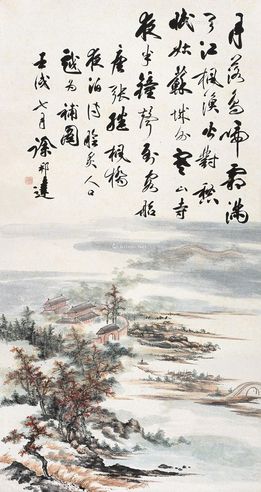 月落烏啼霜滿
天江楓漁火對愁
眠姑蘇城外寒山寺
夜半鐘聲到客船
唐張繼楓橋
夜泊詩膾炙人口
戲為補圖
壬戌七月徐邦達